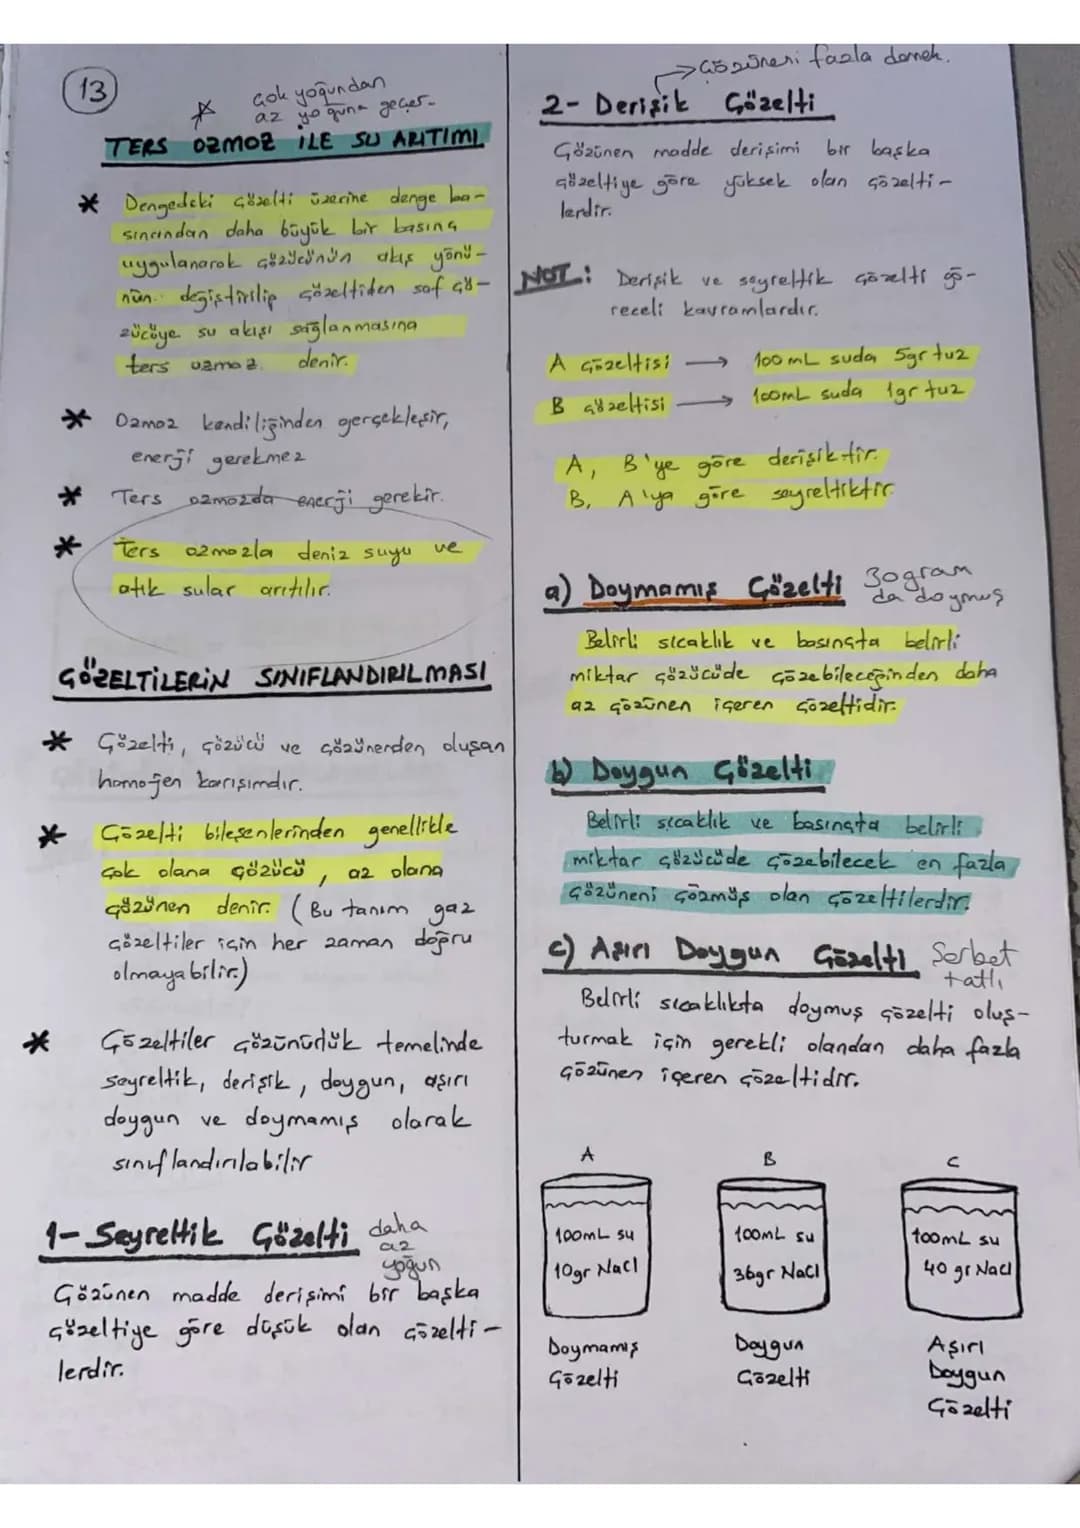 13
çok yoğundan
az yoğuna geçer.
TERS OZMOZ İLE SU ARITIMI
* Dengedeki çözelti üzerine denge ba-
sıncından daha büyük bir basınç
uygulanarak çözücünün akış yönü-
nün değiştirilip çözeltiden saf çö-
zücüye su akışı sağlanmasına
ters ozmoz denir.
* Ozmoz kendiliğinden gerçekleşir,
enerji gerekmez
* Ters ozmozda enerji gerekir.
* Ters ozmozla deniz suyu ve
atık sular arıtılır.
ÇÖZELTİLERİN SINIFLANDIRILMASI
* Çözelti, çözücü ve çözünenden oluşan
homojen karışımdır.
* Çözelti bileşenlerinden genellikle
çok olana çözücü, az olana
çözünen denir. (Bu tanım gaz
çözeltiler için her zaman doğru
olmayabilir.)
* Çözeltiler çözünürlük temelinde
seyreltik, derişik, doygun, aşırı
doygun ve doymamış olarak
sınıflandırılabilir
1- Seyreltik Çözelti daha
az
yoğun
Çözünen madde derişimi bir başka
çözeltiye göre düşük olan çözelti-
lerdir.
→ Çözüneni fazla demek.
2- Derişik Çözelti
Çözünen madde derişimi bir başka
çözeltiye göre yüksek olan çözelti-
lerdir.
NOT: Derişik ve seyreltik çözelti gö-
receli kavramlardır.
A çözeltisi → 100 mL suda 5gr tuz
B çözeltisi → 100mL suda 1gr tuz
A, B'ye göre derişiktir.
B, A'ya göre seyreltiktir.
a) Doymamış Çözelti 30gram
da doymuş
Belirli sıcaklık ve basınçta belirli
miktar çözücüde çözebileceğinden daha
az çözünen içeren çözeltidir.
b) Doygun Çözelti
Belirli sıcaklık ve basınçta belirli
miktar çözücüde çözebilecek en fazla
çözüneni çözmüş olan çözeltilerdir.
c) Aşırı Doygun Çözelti Şerbet
tatlı
Belirli sıcaklıkta doymuş çözelti oluş-
turmak için gerekli olandan daha fazla
çözünen içeren çözeltidir.
A B C
100mL su 100mL su 100mL su
10gr NaCl 36gr NaCl 40 gr NaCl
Doymamış Doygun Aşırı
Çözelti Çözelti Doygun
Çözelti